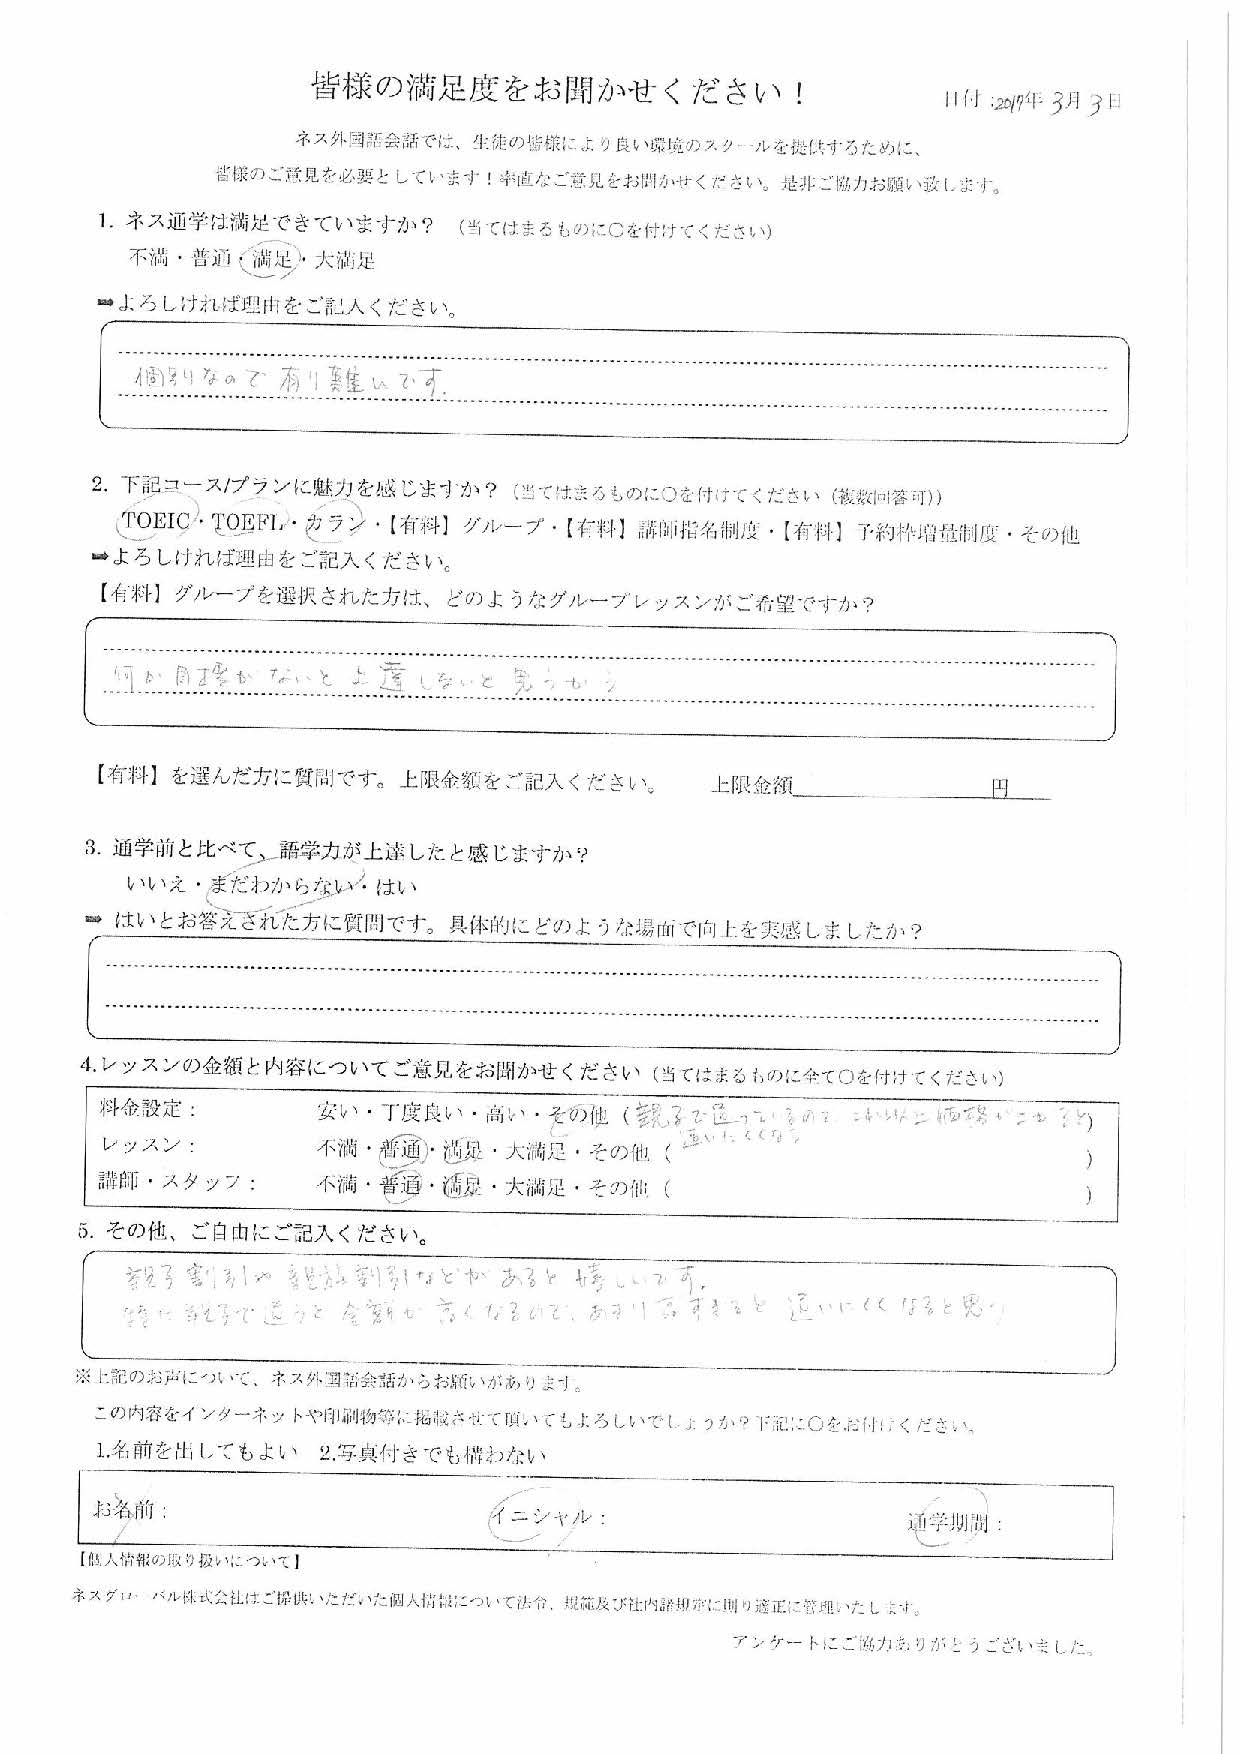 皆様の満足度をお聞かせください！
日付：2017年3月3日
ネス外国語会話では、生徒の皆様により良い環境のスクールを提供するために、
皆様のご意見を必要としています！率直なご意見をお聞かせください。是非ご協力お願い致します。
1. ネス通学は満足できていますか？（当てはまるものに〇を付けてください）
不満・普通・満足・大満足
➡よろしければ理由をご記入ください。
個別なので有り難いです.
2. 下記コース/プランに魅力を感じますか？（当てはまるものに〇を付けてください（複数回答可））
TOEIC・TOEFL・カラン・【有料】グループ・【有料】講師指名制度・【有料】予約枠増量制度・その他
➡よろしければ理由をご記入ください。
【有料】グループを選択された方は、どのようなグループレッスンがご希望ですか？
何か目標がないと上達しないと思うから
【有料】を選んだ方に質問です。上限金額をご記入ください。　上限金額　円
3. 通学前と比べて、語学力が上達したと感じますか？
いいえ・まだわからない・はい
➡ はいとお答えされた方に質問です。具体的にどのような場面で向上を実感しましたか？
4.レッスンの金額と内容についてご意見をお聞かせください（当てはまるものに全て〇を付けてください）
料金設定：　安い・丁度良い・高い・その他（親子で通っているので、これ以上価格が上がると）
通いにくくなる
レッスン：　不満・普通・満足・大満足・その他（　）
講師・スタッフ：　不満・普通・満足・大満足・その他（　）
5. その他、ご自由にご記入ください。
親子割引や親族割引などがあると嬉しいです.
特に親子で通うと金額が高くなるので、あまり高すぎると通いにくくなると思う
※上記のお声について、ネス外国語会話からお願いがあります。
この内容をインターネットや印刷物等に掲載させて頂いてもよろしいでしょうか？下記に〇をお付けください。
1.名前を出してもよい　2.写真付きでも構わない
お名前：　イニシャル：　通学期間：
【個人情報の取り扱いについて】
ネスグローバル株式会社はご提供いただいた個人情報について法令、規範及び社内諸規定に則り適正に管理いたします。
アンケートにご協力ありがとうございました。